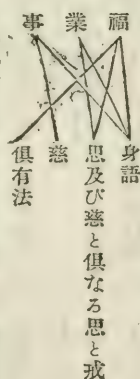 福
業
事
身語
思及び慈と俱なる思と戒
慈
俱有法